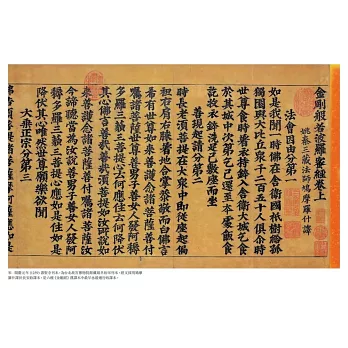 金剛般若波羅蜜經卷上
姚秦三藏法師鳩摩羅什譯
法會因由分第一
如是我聞一時佛在舍衛國祇樹給孤
獨園與大比丘衆千二百五十人俱爾時
世尊食時著衣持鉢入舍衛大城乞食
於其城中次第乞已還至本處飯食
訖收衣鉢洗足已敷座而坐
善現起請分第二
時長老須菩提在大衆中即從座起偏
袒右肩右膝著地合掌恭敬而白佛言
希有世尊如來善護念諸菩薩善付囑
諸菩薩世尊善男子善女人發阿耨
多羅三藐三菩提心云何應住云何降伏
其心佛言善哉善哉須菩提如汝所說如
來善護念諸菩薩善付囑諸菩薩汝
今諦聽當為汝說善男子善女人發阿
耨多羅三藐三菩提心應如是住如是
降伏其心唯然世尊願樂欲聞
大乘正宗分第三
佛告須菩提諸菩薩摩訶薩應如是